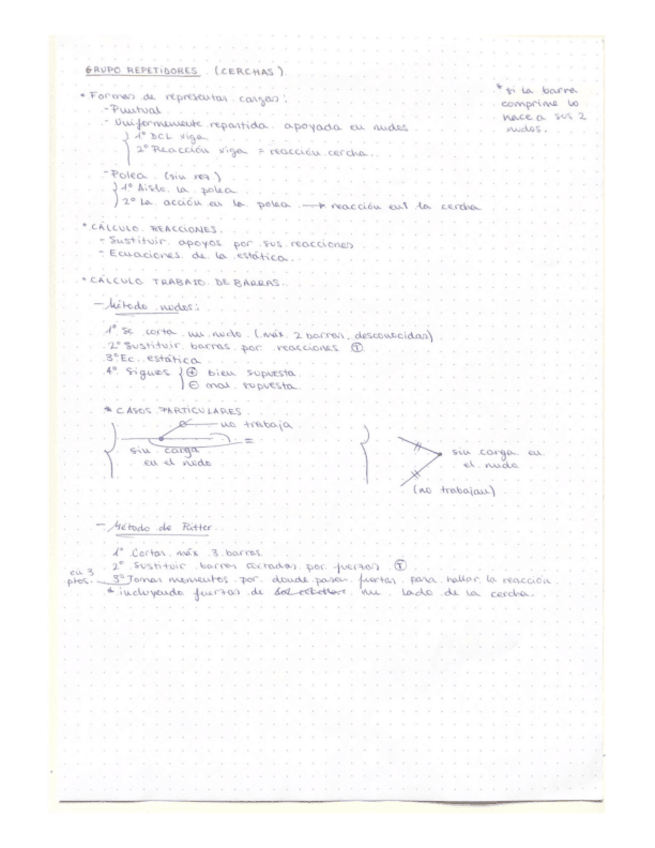 GRUPO REPETIDORES (CERCHAS)
* si la barra
comprime lo
hace a sus 2
nudos.
* Formas de representar cargas:
- Puntual
- Uniformemente repartida apoyada en nudos
1º DCL viga
2º Reacción viga = reacción cercha.
- Polea (sin rez)
1º Aíslo la polea
2º La acción en la polea → reacción en la cercha
* CÁLCULO REACCIONES.
- Sustituir apoyos por sus reacciones
- Ecuaciones de la estática.
* CÁLCULO TRABAJO DE BARRAS.
- Método nudos:
1º Se corta un nudo (máx 2 barras desconocidas)
2º Sustituir barras por reacciones T
3º Ec. estática
4º Signos + bien supuesta
- mal supuesta
* CASOS PARTICULARES
no trabaja
=
sin carga
en el nudo
sin carga en
el nudo
(no trabajan)
- Método de Ritter
1º Cortas máx 3 barras
2º Sustituir barras cortadas por fuerzas T
en 3
ptos.
3º Tomar momentos por donde pasan fuertas para hallar la reacción.
* incluyendo fuerzas de un lado de la cercha.